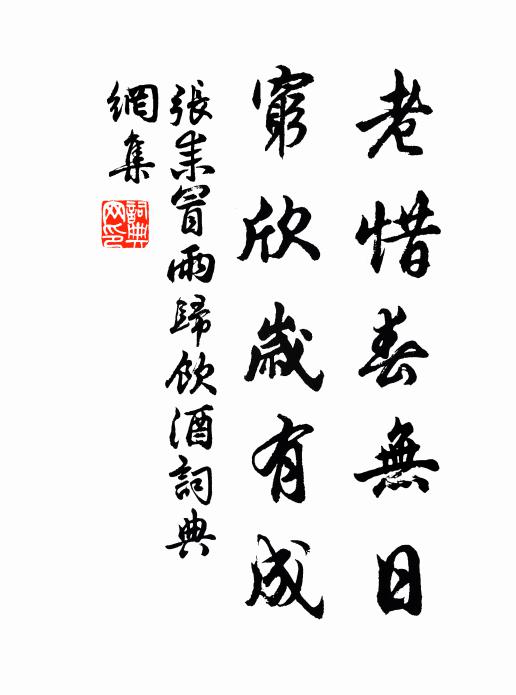 老惜春無日
窮欣歲有成
張耒冒雨歸飲酒詞典
網集
詞典網印